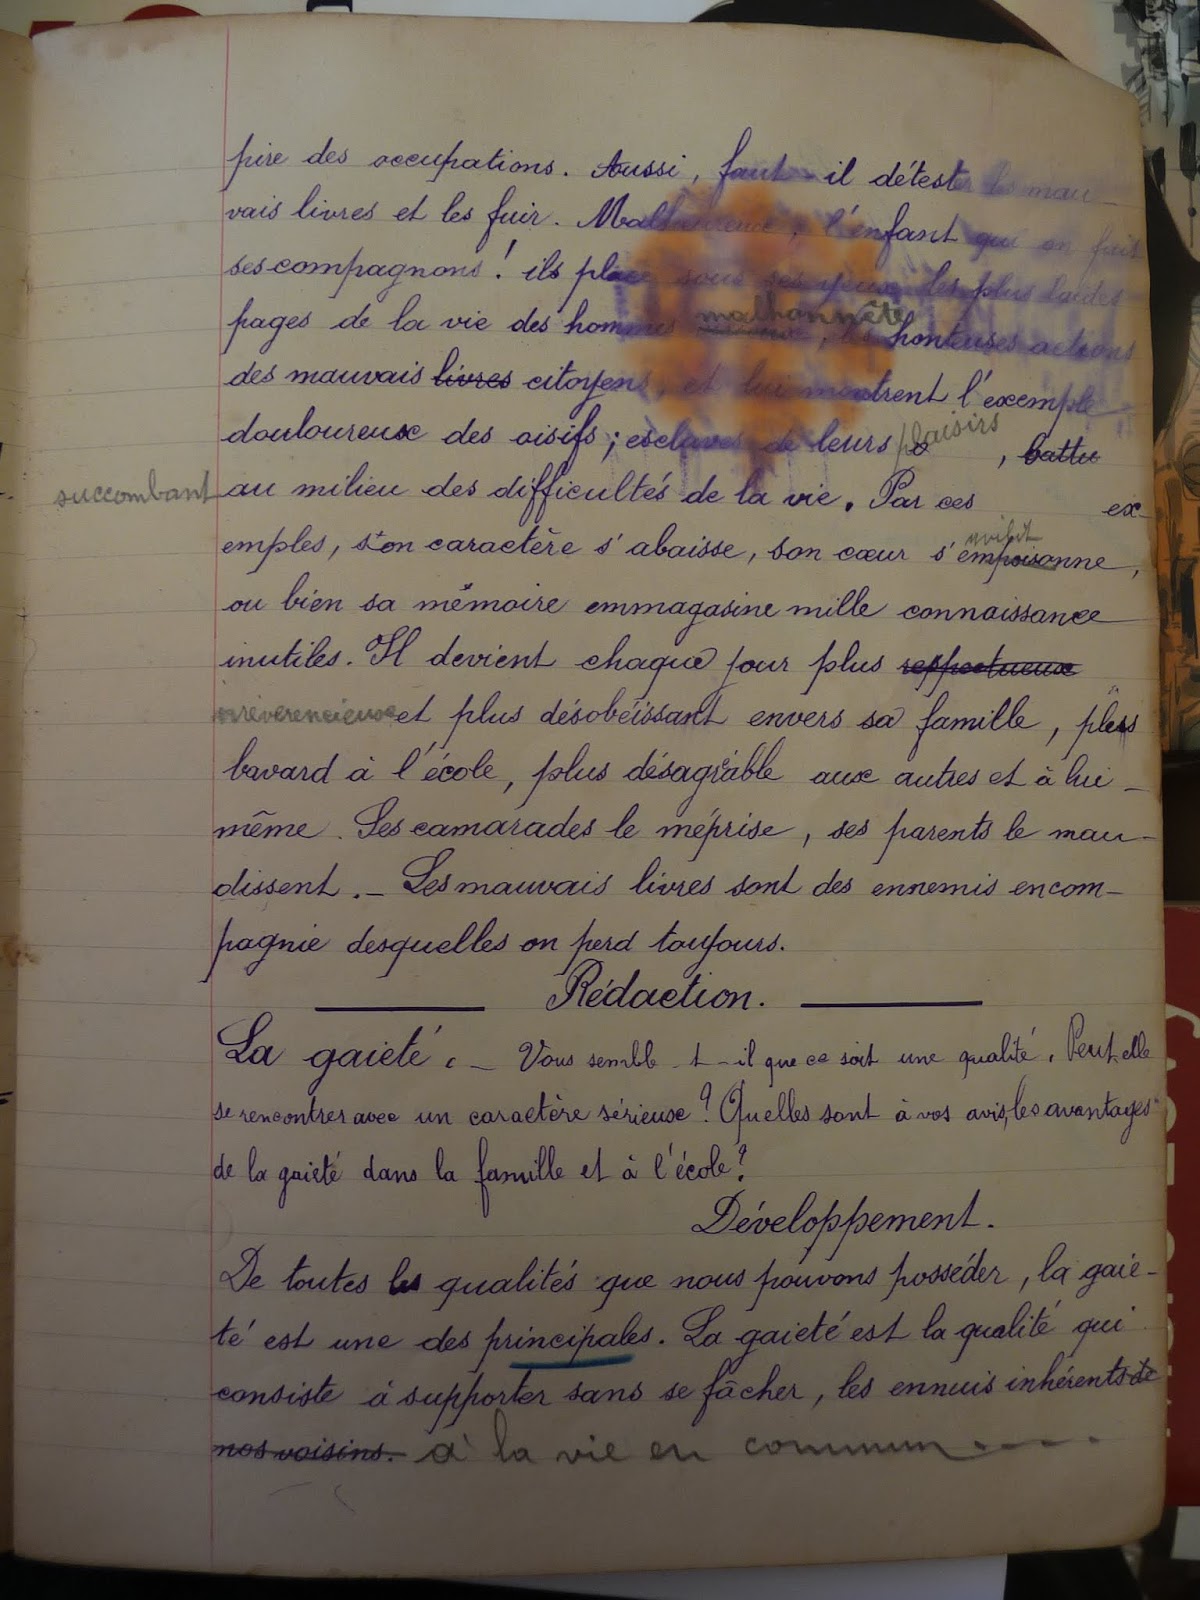 pire des occupations. Aussi, faut-il détester les mau-
vais livres et les fuir. Malheureux, l'enfant qui en fait
ses compagnons! ils place sous ses yeux les plus laides
pages de la vie des hommes malhonnête, les honteuses actions
des mauvais livres citoyens, et lui montrent l'exemple
douloureux des oisifs; esclaves de leurs plaisirs, battu
succombant au milieu des difficultés de la vie. Par ces ex-
emples, son caractère s'abaisse, son cœur s'empoisonne,
ou bien sa mémoire emmagasine mille connaissance
inutiles. Il devient chaque jour plus respectueux
irréverencieuse et plus désobéissant envers sa famille, plus
bavard à l'école, plus désagréable aux autres et à lui-
même. Ses camarades le méprise, ses parents le mau-
dissent. _ Les mauvais livres sont des ennemis en com-
pagnie desquelles on perd toujours.
Rédaction.
La gaieté. _ Vous semble-t-il que ce soit une qualité. Peut-elle
se rencontrer avec un caractère sérieux? Quelles sont à vos avis, les avantages
de la gaieté dans la famille et à l'école?
Développement.
De toutes les qualités que nous pouvons posséder, la gaie-
té est une des principales. La gaieté est la qualité qui
consiste à supporter sans se fâcher, les ennuis inhérents de
nos voisins. à la vie en commun ....